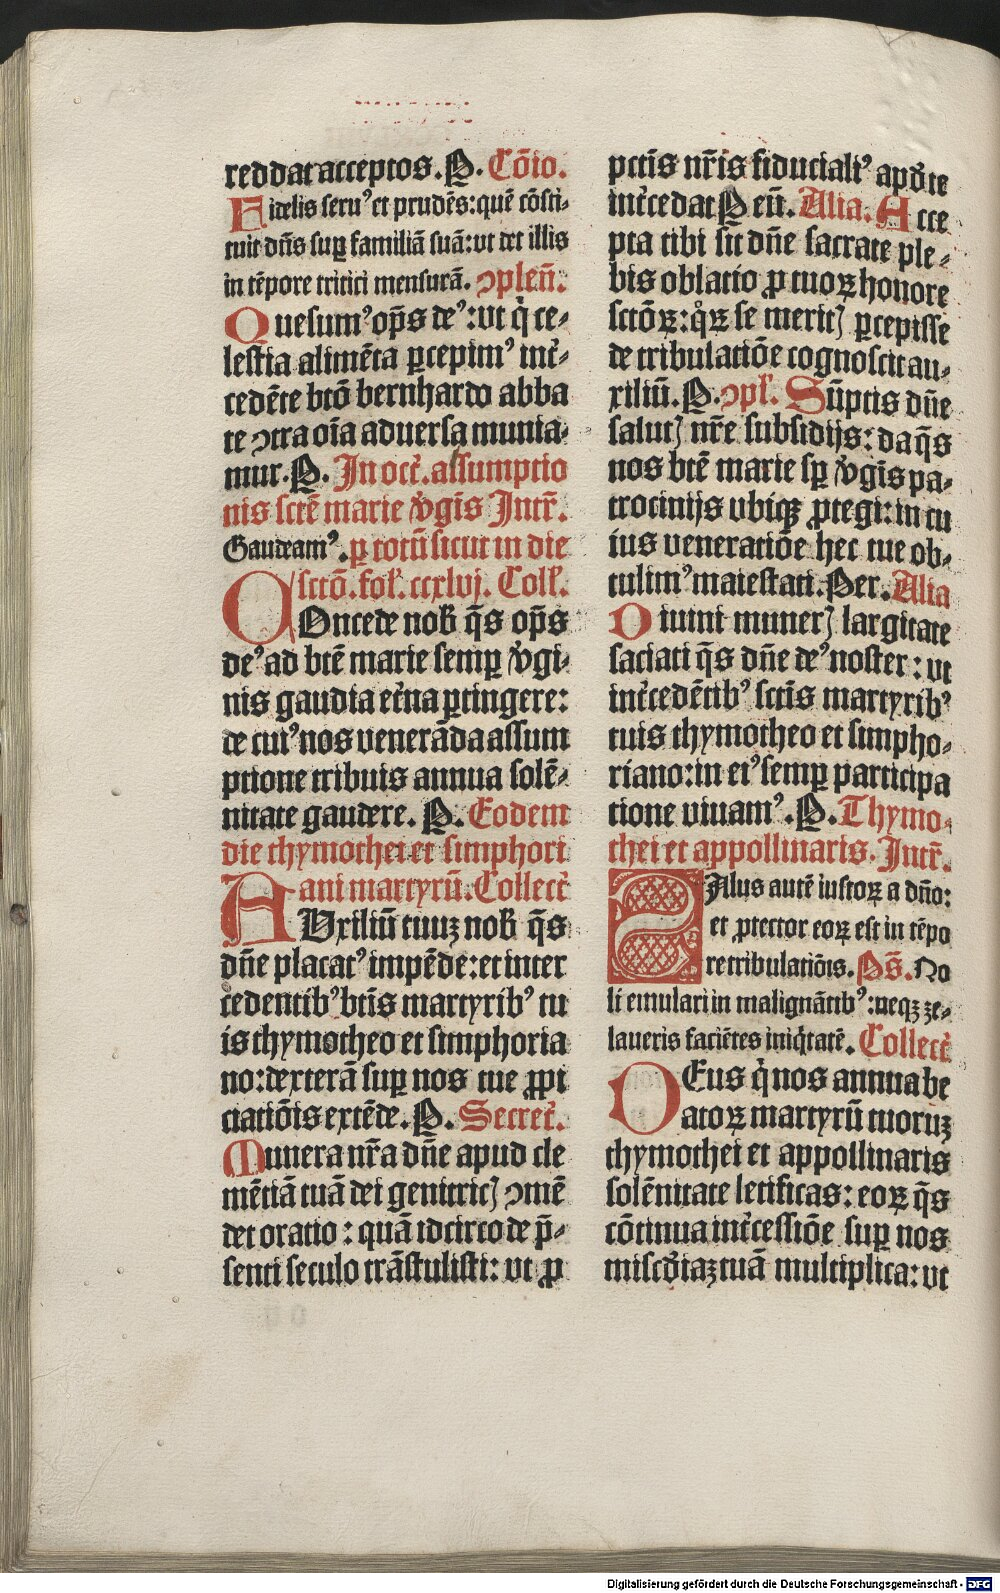 reddat acceptos. P. Cōio.
Fidelis seruꝰ et prudēs: quē cōsti-
tuit dn̄s suꝑ familiā suā: vt det illis
in tēpore tritici mensurā. ꝯplen̄.
Quesumꝰ op̄s deꝰ: vt q̇ ce-
lestia alimēta ꝑcepimꝰ int̄-
cedēte btō bernhardo abba
te ꝯtra oīa aduersa munia-
mur. P. In oct̄. assumptio
nis sctē marie v̄gīs Intr̄.
Gaudeamꝰ. ꝑ totū sicut in die
scto. fol. ccxlvj. Coll.
COncede nob q̄s op̄s
deꝰ ad btē marie semꝑ v̄gi-
nis gaudia et̄na ꝑtingere:
de cuiꝰ nos venerāda assum
ptione tribuis annua solē-
nitate gaudere. P. Eodem
die thymothei et simphori
ani martyrū. Collect̄
AVxiliū tuuꝫ nob q̄s
dn̄e placatꝰ impēde: et inter
cedentibꝰ btīs martyribꝰ tu
is thymotheo et simphoria
no: dexterā suꝑ nos tue ꝓpi
ciatiōis extēde. P. Secret̄.
Munera nr̄a dn̄e apud cle
mētiā tuā dei genitricꝭ ꝯmē
det oratio: quā idcirco de p̄-
senti seculo trāstulisti: vt ꝓ
pctīs nr̄is fiducialiꝰ apd̓ te
int̄cedat P eū. Alia. Acce
pta tibi sit dn̄e sacrate ple-
bis oblatio ꝓ tuoꝝ honore
sctōꝝ: q̊ꝝ se meritꝭ ꝑcepisse
de tribulatiōe cognoscit au-
xiliū. P. ꝯpl. Sūptis dn̄e
salutꝭ nr̄e subsidijs: da q̄s
nos btē marie sꝑ v̄gīs pa-
trocinijs vbiqꝫ ꝓtegi: in cu
ius veneratiōe hec tue ob-
tulimꝰ maiestati. Per. Alia
Diuini munerꝭ largitate
saciati q̄s dn̄e deꝰ noster: vt
int̄cedētibꝰ sctīs martyribꝰ
tuis thymotheo et simpho-
riano: in eiꝰ semꝑ participa
tione viuamꝰ. P. Thymo-
thei et appollinaris. Intr̄.
SAlus autē iustoꝝ a dn̄o:
et ꝓtector eoꝝ est in tēpo
re tribulatiōis. Ps̄. No
li emulari in malignātibꝰ: neqꝫ ze-
laueris faciētes iniq̇tatē. Collect̄
DEus q̇ nos annua be
atoꝝ martyrū tuoruꝫ
thymothei et appollinaris
solēnitate letificas: eoꝝ q̄s
cōtinua int̄cessiōe suꝑ nos
miscd̓iaꝫ tuā multiplica: vt
Digitalisierung gefördert durch die Deutsche Forschungsgemeinschaft - DFG